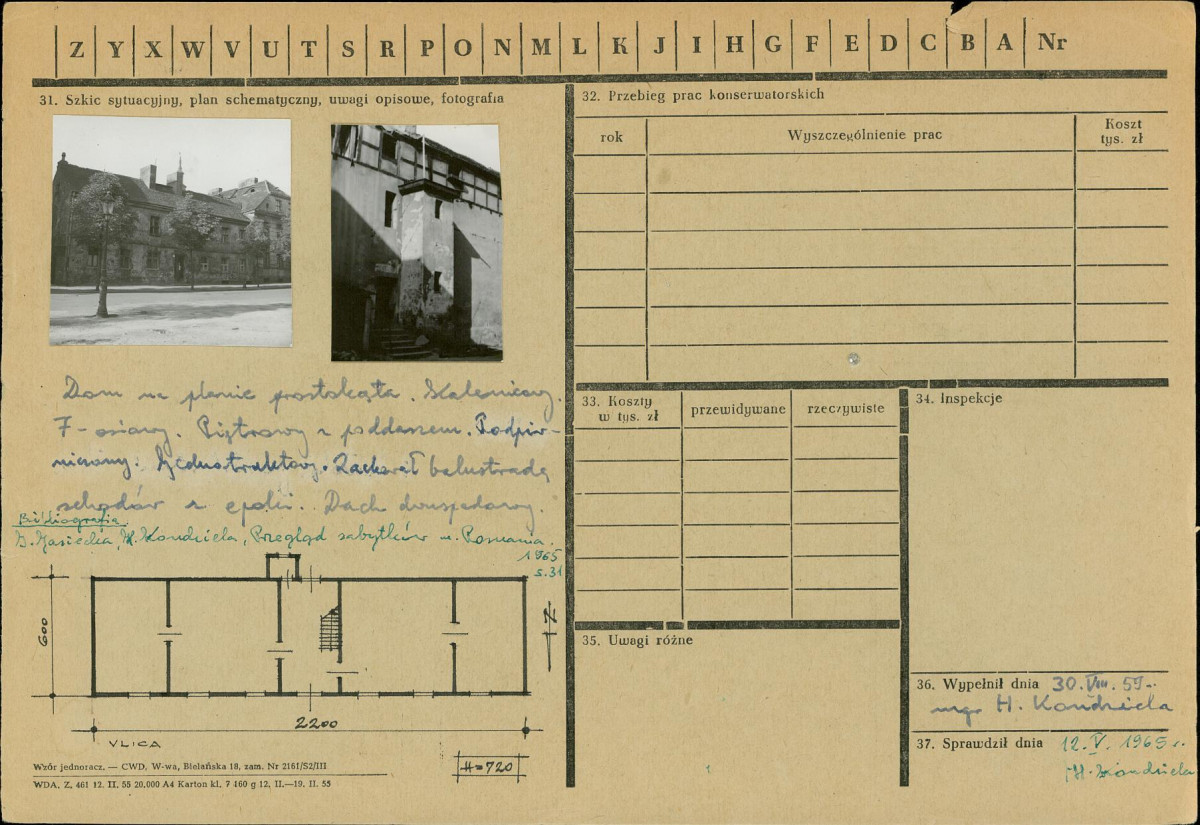 Z Y X W V U T S R P O N M L K J I H G F E D C B A Nr
31. Szkic sytuacyjny, plan schematyczny, uwagi opisowe, fotografia
Dom na planie prostokąta. Kalenicowy.
7-osiowy. Piętrowy z poddaszem. Podpiw-
niczony. Zachował balustradę
schodów z epoki. Dach dwuspadowy.
Bibliografia
Kondziela, Przegląd zabytków m. Poznania.
1965
s. 31
600
N
2200
VLICA
H=720
Wzór jednoracz. — CWD, W-wa, Bielańska 18, zam. Nr 2161/S2/III
WDA. Z. 461 12. II. 55 20.000 A4 Karton kl. 7 160 g 12. II.—19. II. 55
32. Przebieg prac konserwatorskich
rok
Wyszczególnienie prac
Koszt
tys. zł
33. Koszty
w tys. zł
przewidywane
rzeczywiste
34. Inspekcje
35. Uwagi różne
36. Wypełnił dnia 30.VIII.59.
mgr H. Kondziela
37. Sprawdził dnia 12.V.1965 r.
H. Kondziela